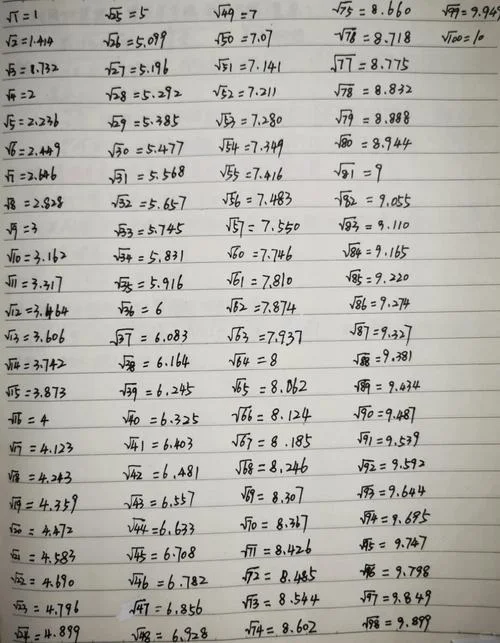 √1=1
√2=1.414
√3=1.732
√4=2
√5=2.236
√6=2.449
√7=2.646
√8=2.828
√9=3
√10=3.162
√11=3.317
√12=3.464
√13=3.606
√14=3.742
√15=3.873
√16=4
√17=4.123
√18=4.243
√19=4.359
√20=4.472
√21=4.583
√22=4.690
√23=4.796
√24=4.899
√25=5
√26=5.099
√27=5.196
√28=5.292
√29=5.385
√30=5.477
√31=5.568
√32=5.657
√33=5.745
√34=5.831
√35=5.916
√36=6
√37=6.083
√38=6.164
√39=6.245
√40=6.325
√41=6.403
√42=6.481
√43=6.557
√44=6.633
√45=6.708
√46=6.782
√47=6.856
√48=6.928
√49=7
√50=7.07
√51=7.141
√52=7.211
√53=7.280
√54=7.349
√55=7.416
√56=7.483
√57=7.550
√60=7.746
√61=7.810
√62=7.874
√63=7.937
√64=8
√65=8.062
√66=8.124
√67=8.185
√68=8.246
√69=8.307
√70=8.367
√71=8.426
√72=8.485
√73=8.544
√74=8.602
√75=8.660
√78=8.718
√77=8.775
√78=8.832
√79=8.888
√80=8.944
√81=9
√82=9.055
√83=9.110
√84=9.165
√85=9.220
√86=9.274
√87=9.327
√88=9.381
√89=9.434
√90=9.487
√91=9.539
√92=9.592
√93=9.644
√94=9.695
√95=9.747
√96=9.798
√97=9.849
√98=9.899
√99=9.949
√100=10